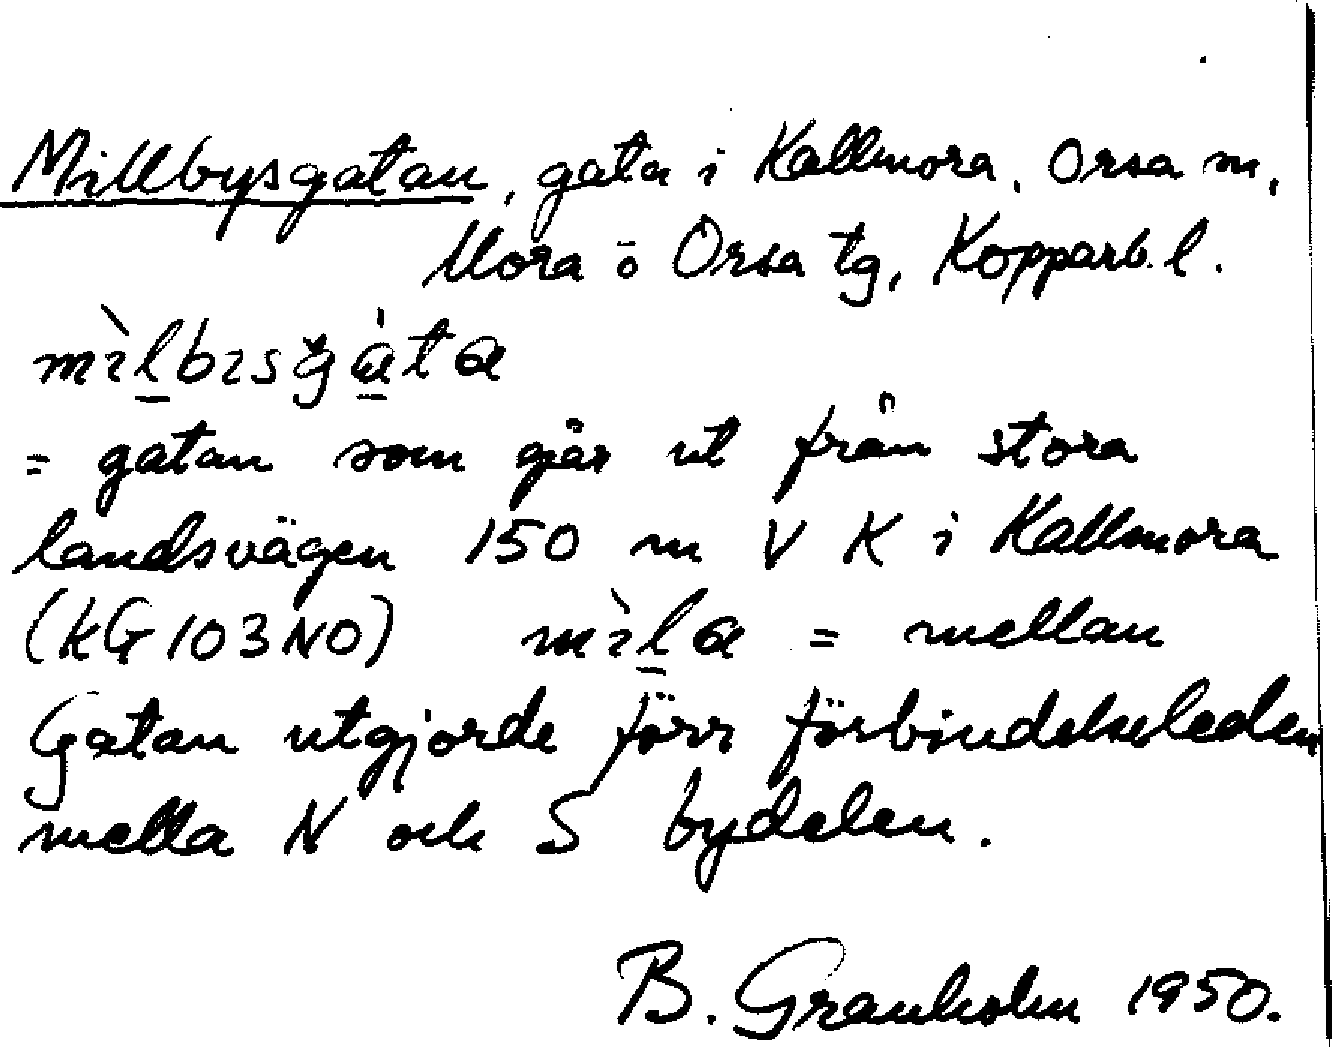 Millbysgatan, gata i Kallmora, Orsa m,
Mora o Orsa tg, Kopparb. l.
mìlbısgàta
= gatan som går ut från stora
landsvägen 150 m V K i Kallmora
(KG 103 NO) mìla = mellan
Gatan utgjorde förr förbindelseleden
mella N och S bydelen.
B. Granholm 1950.